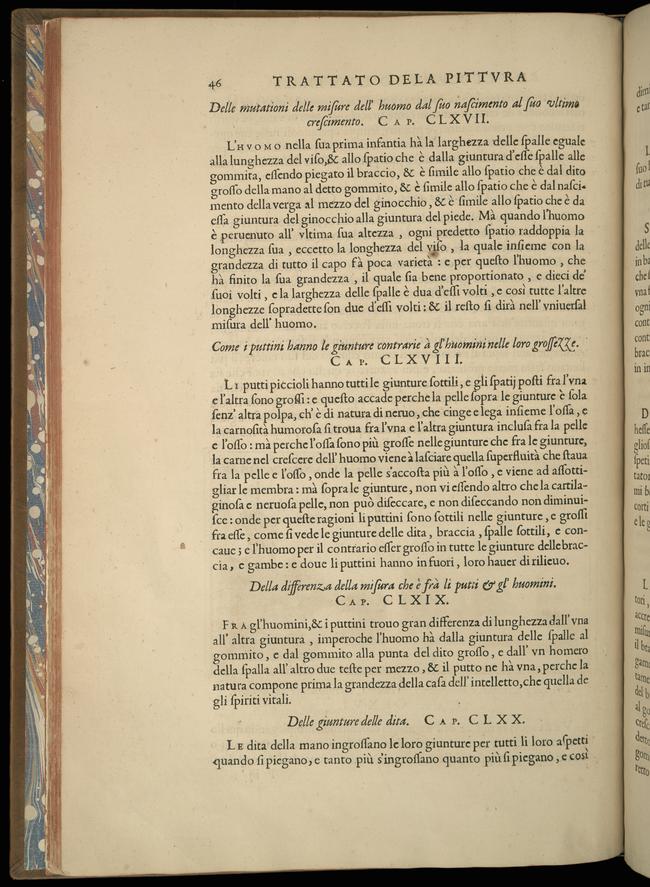 46 TRATTATO DELA PITTVRA
Delle mutationi delle miſure dell' huomo dal ſuo naſcimento al ſuo vltimo
creſcimento. CAP. CLXVII.
L'HVOMO nella ſua prima infantia hà la larghezza delle ſpalle eguale
alla lunghezza del viſo,& allo ſpatio che è dalla giuntura d'eſſe ſpalle alle
gommita, eſſendo piegato il braccio, & è ſimile allo ſpatio che è dal dito
groſſo della mano al detto gommito, & è ſimile allo ſpatio che è dal naſci-
mento della verga al mezzo del ginocchio, & è ſimile allo ſpatio che è da
eſſa giuntura del ginocchio alla giuntura del piede. Mà quando l'huomo
è peruenuto all' vltima ſua altezza , ogni predetto ſpatio raddoppia la
longhezza ſua , eccetto la longhezza del viſo , la quale inſieme con la
grandezza di tutto il capo fà poca varietà : e per queſto l'huomo , che
hà finito la ſua grandezza , il quale ſia bene proportionato , e dieci de'
ſuoi volti , e la larghezza delle ſpalle è dua d'eſſi volti , e così tutte l'altre
longhezze ſopradette ſon due d'eſſi volti : & il reſto ſi dirà nell' vniuerſal
miſura dell' huomo.
Come i puttini hanno le giunture contrarie à gl'huomini nelle loro groſſezze.
CAP. CLXVIII.
LI putti piccioli hanno tutti le giunture ſottili, e gli ſpatij poſti fra l'vna
e l'altra ſono groſſi : e queſto accade perche la pelle ſopra le giunture è ſola
ſenz' altra polpa, ch' è di natura di neruo, che cinge e lega inſieme l'oſſa, e
la carnoſità humoroſa ſi troua fra l'vna e l'altra giuntura incluſa fra la pelle
e l'oſſo : mà perche l'oſſa ſono più groſſe nelle giunture che fra le giunture,
la carne nel creſcere dell' huomo viene à laſciare quella ſuperfluità che ſtaua
fra la pelle e l'oſſo , onde la pelle s'accoſta più à l'oſſo , e viene ad aſſotti-
gliar le membra : mà ſopra le giunture , non vi eſſendo altro che la cartila-
ginoſa e neruoſa pelle, non può diſeccare, e non diſeccando non diminui-
ſce : onde per queſte ragioni li puttini ſono ſottili nelle giunture , e groſſi
fra eſſe, come ſi vede le giunture delle dita , braccia , ſpalle ſottili, e con-
caue ; e l'huomo per il contrario eſſer groſſo in tutte le giunture delle brac-
cia , e gambe : e doue li puttini hanno in fuori , loro hauer di rilieuo.
Della differenza della miſura che è frà li putti & gl' huomini.
CAP. CLXIX.
FRA gl'huomini,& i puttini trouo gran differenza di lunghezza dall' vna
all' altra giuntura , imperoche l'huomo hà dalla giuntura delle ſpalle al
gommito , e dal gommito alla punta del dito groſſo , e dall' vn homero
della ſpalla all' altro due teſte per mezzo , & il putto ne hà vna, perche la
natura compone prima la grandezza della caſa dell' intelletto, che quella de
gli ſpiriti vitali.
Delle giunture delle dita. CAP. CLXX.
LE dita della mano ingroſſano le loro giunture per tutti li loro aſpetti
quando ſi piegano, e tanto più s'ingroſſano quanto più ſi piegano, e così